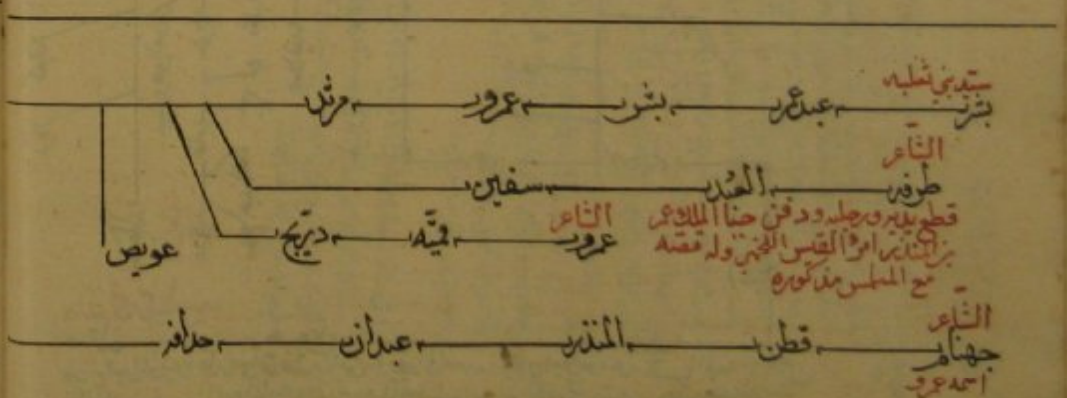 سيد بني ثعلبه
بشر عبد عمرو بشر عمرو مرثد
الشاعر
طرفه العبد سفين
قطع يديه ورجليه ودفن حيا الملك عمرو
بن المنذر امرؤ القيس اللخمي وله قصه
مع المتلمس مذكوره
الشاعر
عمرو قميّه ديريج
عويص
الشاعر
جهنام قطن المنذر عبدان حذافه
اسمه عمرو